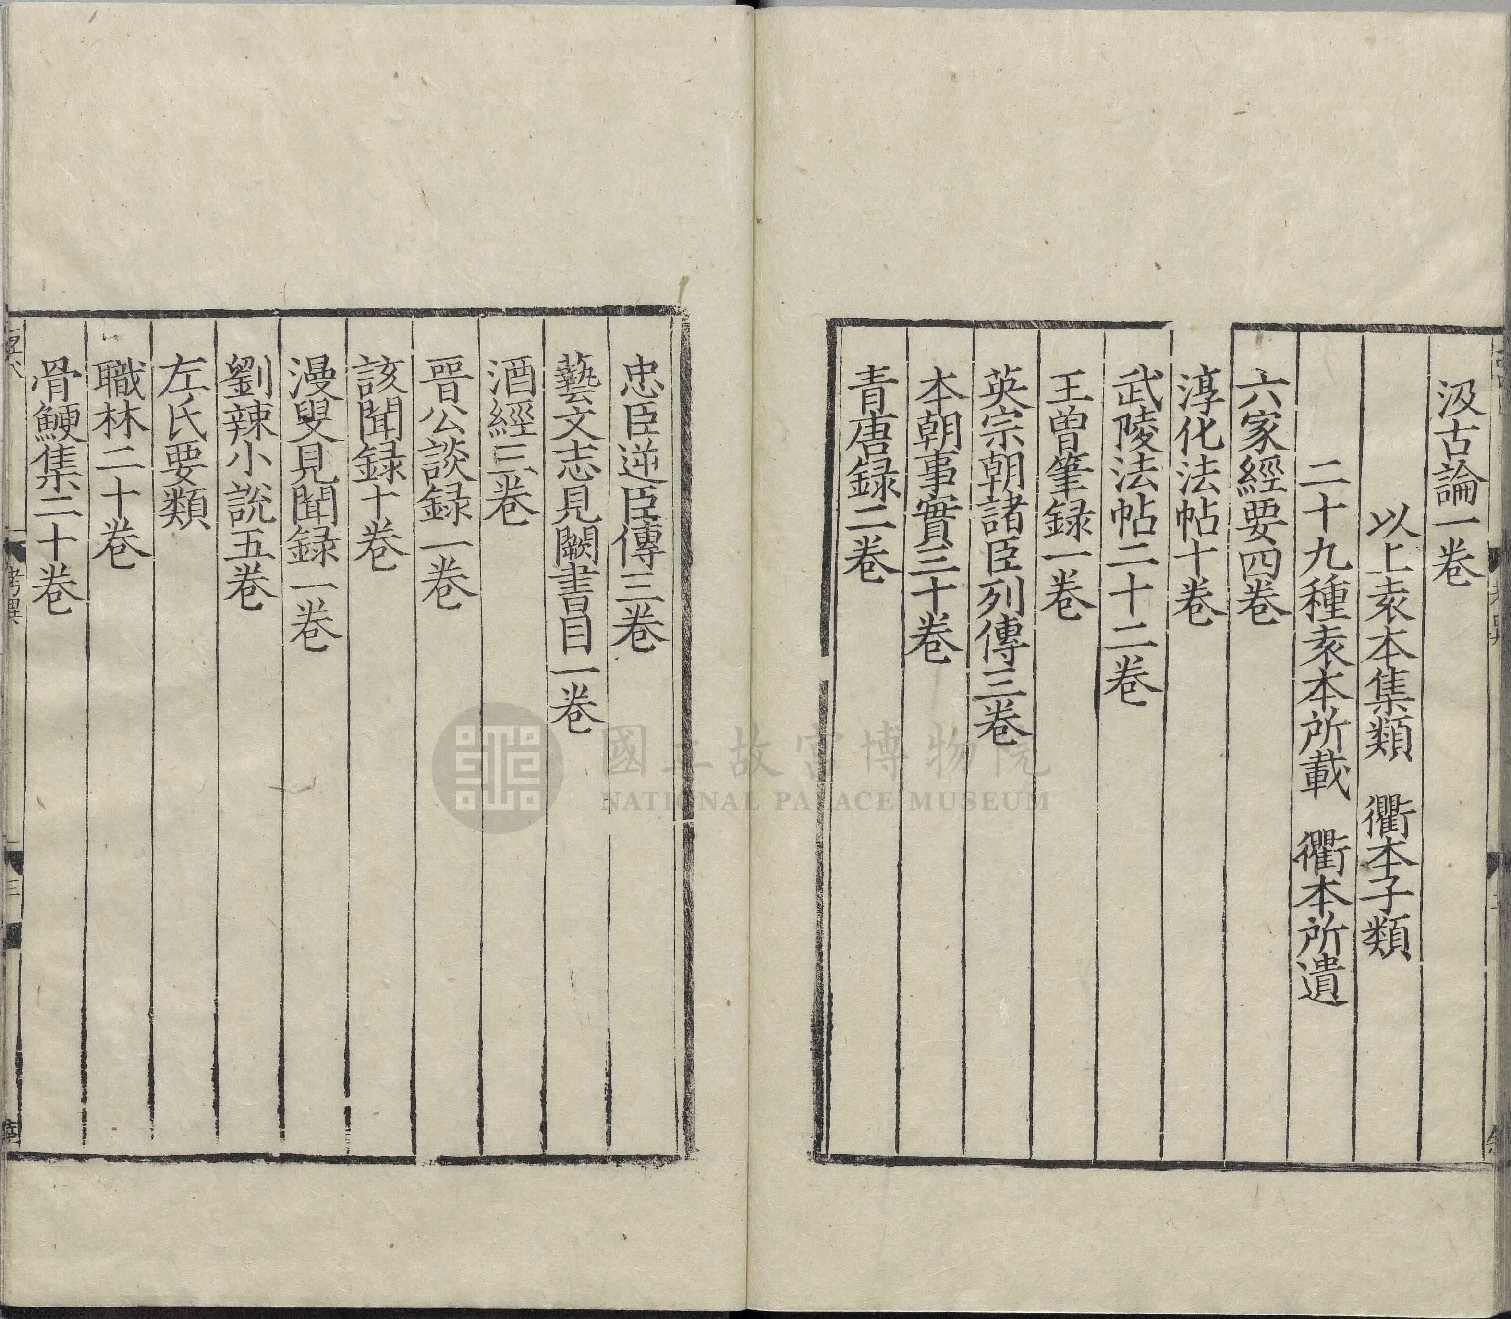 汲古論一卷
以上袁本集類　衢本子類
二十九種袁本所載　衢本所遺
六家經要四卷
淳化法帖十卷
武陵法帖二十二卷
王曾筆録一卷
英宗朝諸臣列傳三卷
本朝事實三十卷
青唐録二卷
忠臣逆臣傳三卷
藝文志見闕書目一卷
酒經三卷
晉公談録一卷
該聞録十卷
漫叟見聞録一卷
劉辣小說五卷
左氏要類
職林二十卷
骨鯁集二十卷
考異
三
國立故宮博物院
NATIONAL PALACE MUSEUM